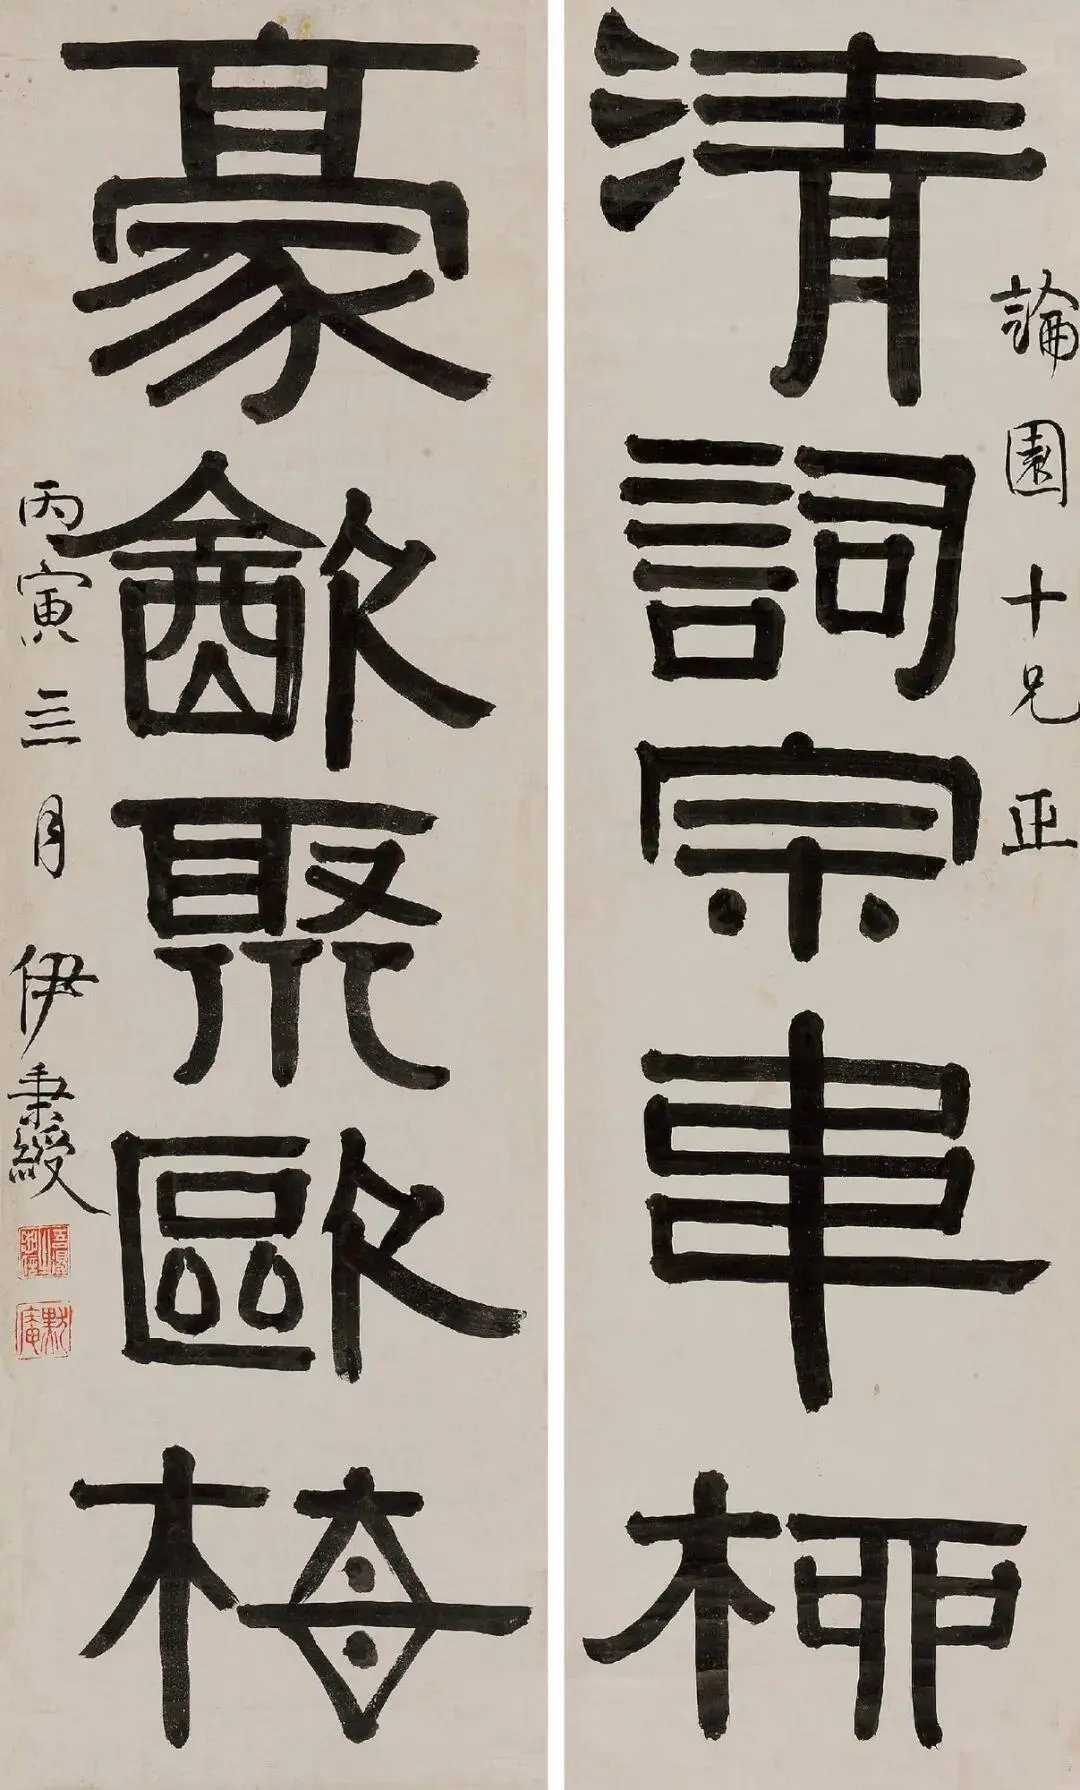 論園十兄正
清詞宗韋柳
豪㱃聚歐梅
丙寅三月伊秉綬
默庵